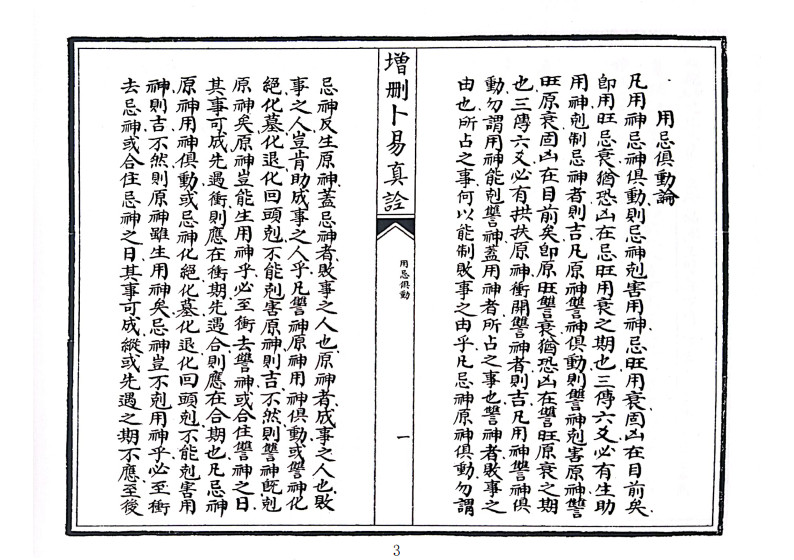 用忌俱動論
凡用神忌神俱動則忌神剋害用神忌旺用衰固凶在目前矣
卽用旺忌衰猶恐凶在忌旺用衰之期也三傳六爻必有生助
用神剋制忌神者則吉凡原神讐神俱動則讐神剋害原神讐
旺原衰固凶在目前矣卽原旺讐衰猶恐凶在讐旺原衰之期
也三傳六爻必有拱扶原神衝開讐神者則吉凡用神讐神俱
動勿謂用神能剋讐神蓋用神者所占之事也讐神者敗事之
由也所占之事何以能制敗事之由乎凡忌神原神俱動勿謂
增刪卜易真詮
用忌俱動
一
忌神反生原神蓋忌神者敗事之人也原神者成事之人也敗
事之人豈肯助成事之人乎凡讐神原神用神俱動或讐神化
絕化墓化退化回頭剋不能剋害原神則吉不然則讐神旣剋
原神矣原神豈能生用神乎必至衝去讐神或合住讐神之日
其事可成先遇衝則應在衝期先遇合則應在合期也凡忌神
原神用神俱動或忌神化絕化墓化退化回頭剋不能剋害用
神則吉不然則原神雖生用神矣忌神豈不剋用神乎必至衝
去忌神或合住忌神之日其事可成縱或先遇之期不應至後
3